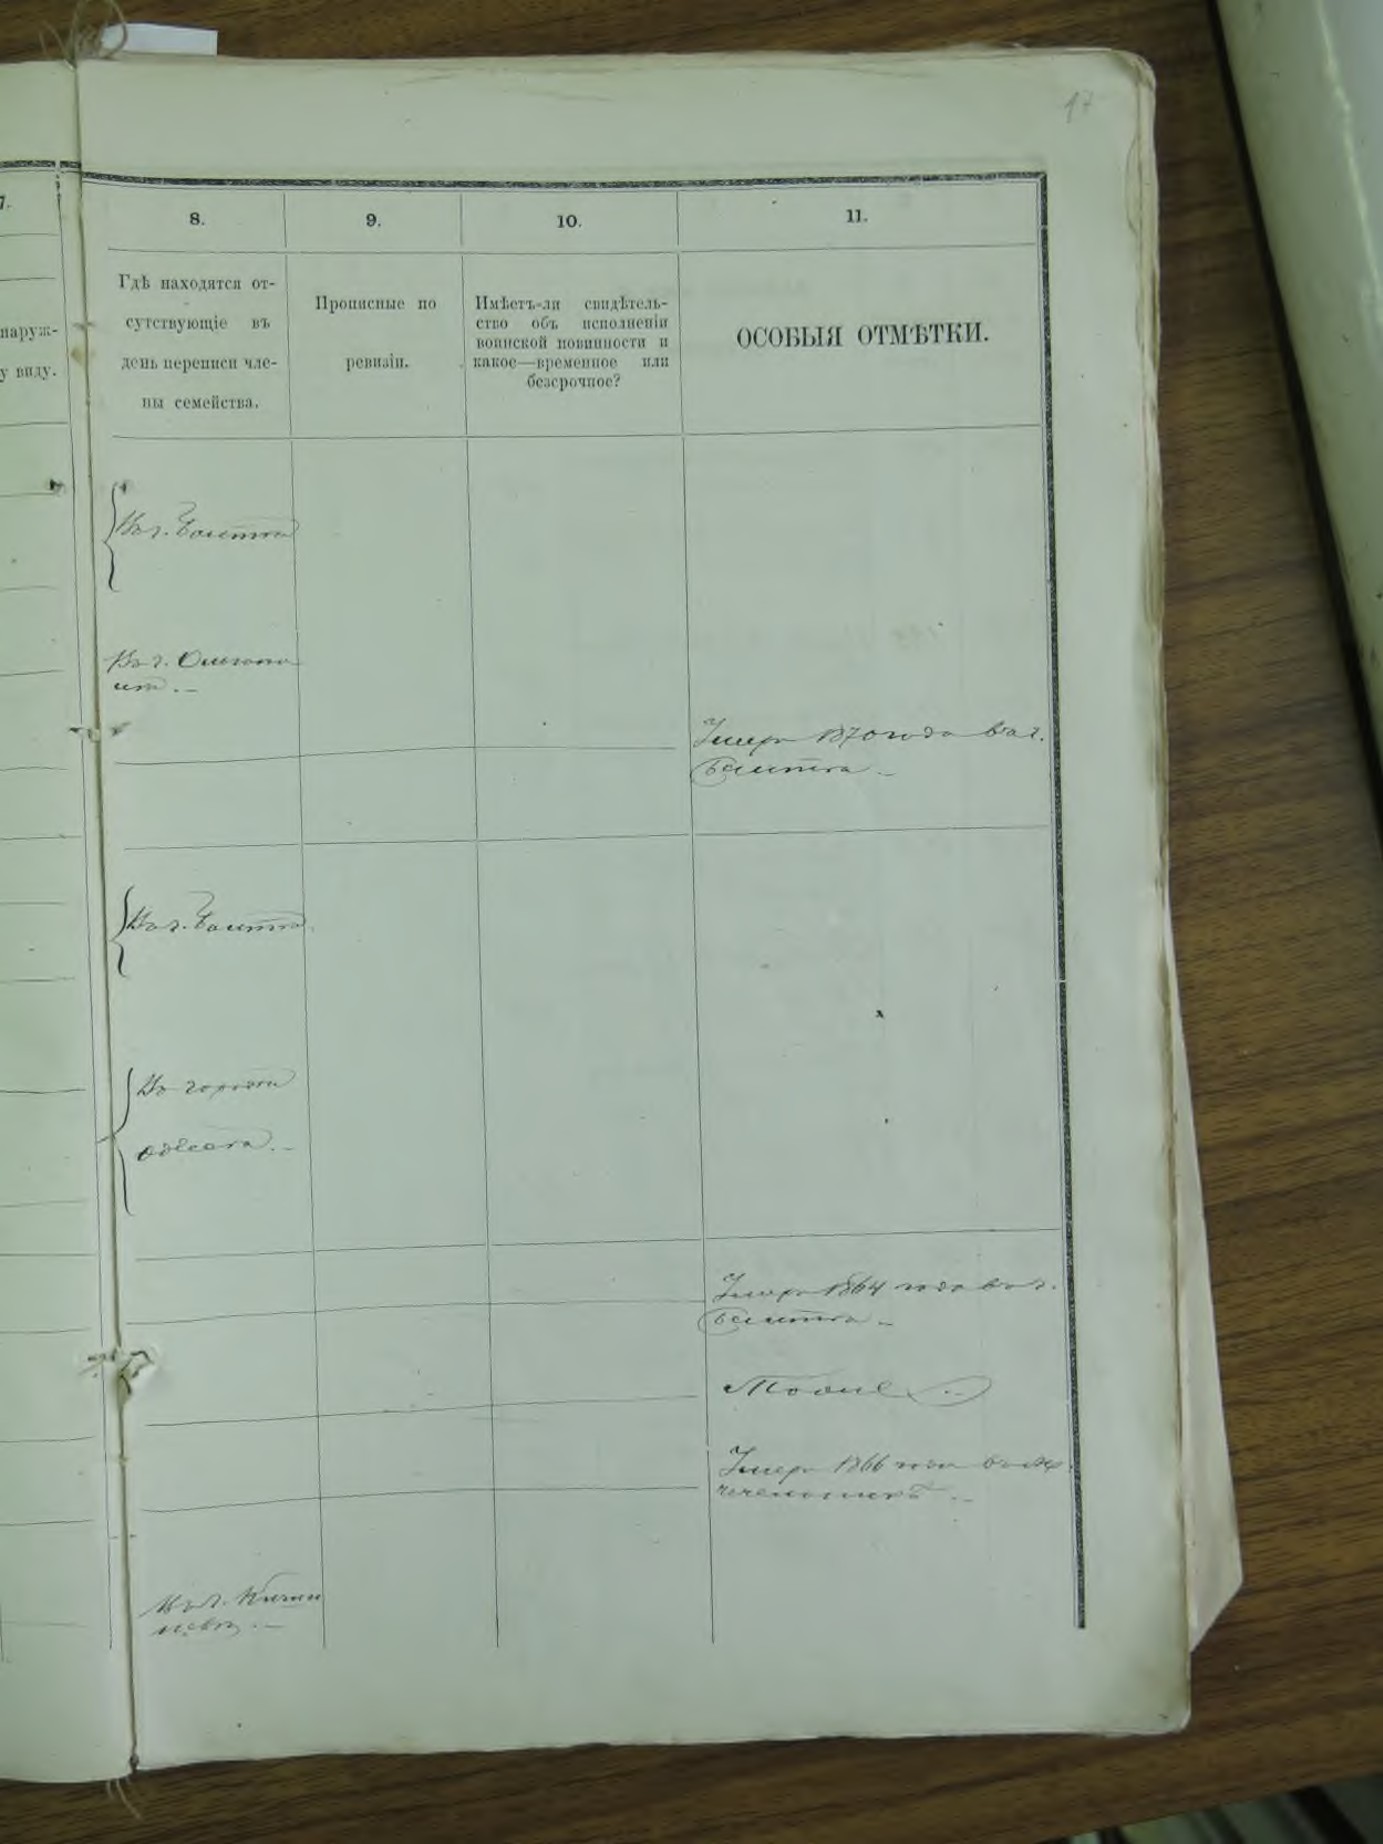 17
7.
8.
9.
10.
11.
наруж-
у виду.
Гдѣ находятся от-
сутствующіе въ
день переписи чле-
ны семейства.
Прописные по
ревизіи.
Имѣетъ-ли свидѣтель-
ство объ исполненіи
воинской повинности и
какое—временное или
безсрочное?
ОСОБЫЯ ОТМѢТКИ.
Въ г. Балта
Въ г.
Умеръ 1870 года въ г.
Балта
Въ г. Балта
Въ городѣ
Одесса.
Умеръ 1864 года въ г.
Балта
Тоже
Умеръ 1866 года
Въ г. Киши
невѣ